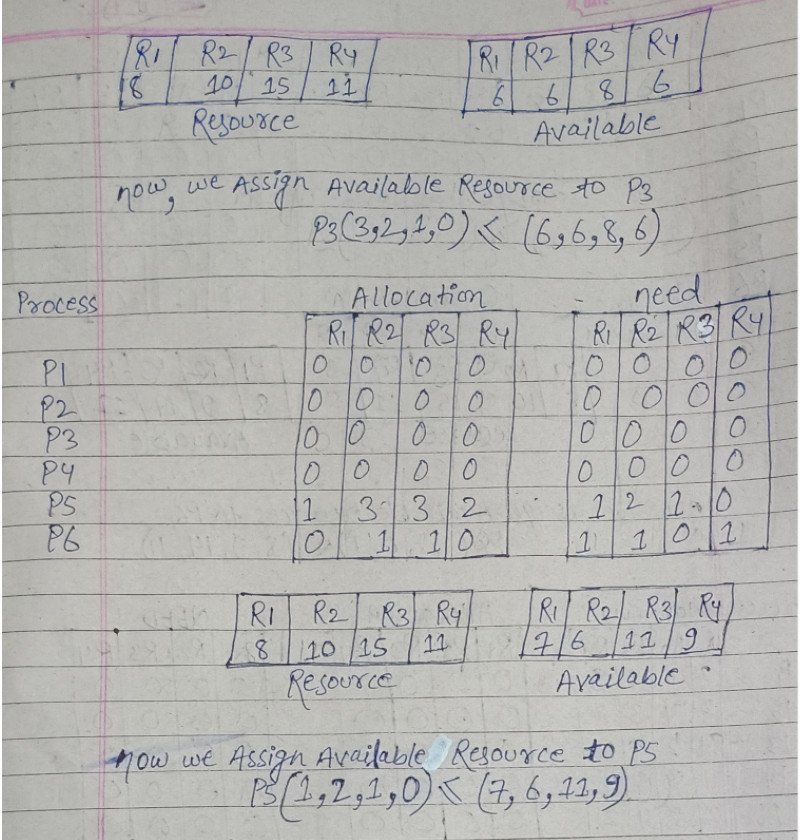 R1 R2 R3 R4
8 10 15 11
Resource
R1 R2 R3 R4
6 6 8 6
Available
now, we Assign Available Resource to P3
P3(3,2,1,0) ≤ (6,6,8,6)
Process Allocation need
R1 R2 R3 R4 R1 R2 R3 R4
P1 0 0 0 0 0 0 0 0
P2 0 0 0 0 0 0 0 0
P3 0 0 0 0 0 0 0 0
P4 0 0 0 0 0 0 0 0
P5 1 3 3 2 1 2 1 0
P6 0 1 1 0 1 1 0 1
R1 R2 R3 R4
8 10 15 11
Resource
R1 R2 R3 R4
7 6 11 9
Available
now we Assign Available Resource to P5
P5(1,2,1,0) ≤ (7,6,11,9)